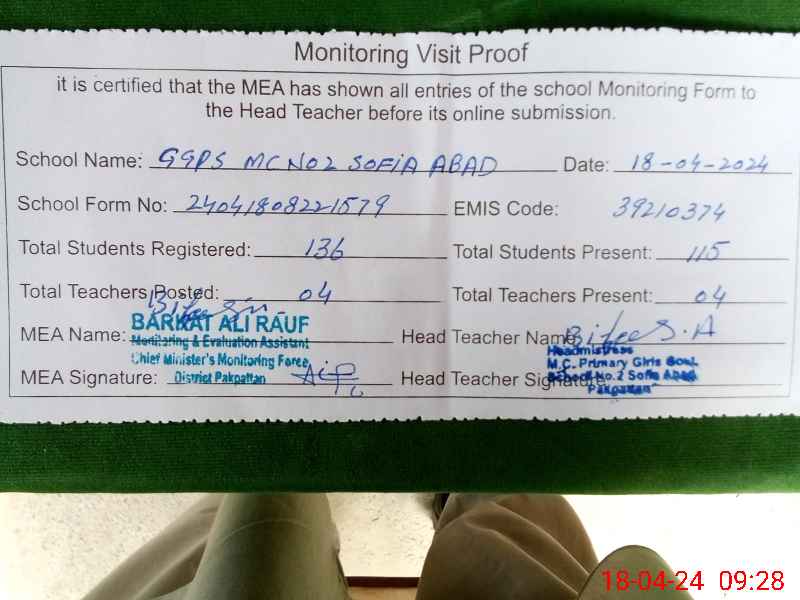 Monitoring Visit Proof
it is certified that the MEA has shown all entries of the school Monitoring Form to
the Head Teacher before its online submission.
School Name: GGPS MC NO2 SOFIA ABAD Date: 18-04-2024
School Form No: 24041808221579 EMIS Code: 39210374
Total Students Registered: 136 Total Students Present: 115
Total Teachers Posted: 04 Total Teachers Present: 04
MEA Name: BARKAT ALI RAUF Head Teacher Name
Monitoring & Evaluation Assistant
Chief Minister's Monitoring Force
District Pakpattan
MEA Signature: Head Teacher Signature
Headmistress
M.C. Primary Girls Scool.
School No.2 Sofia Abad
Pakpattan
18-04-24 09:28